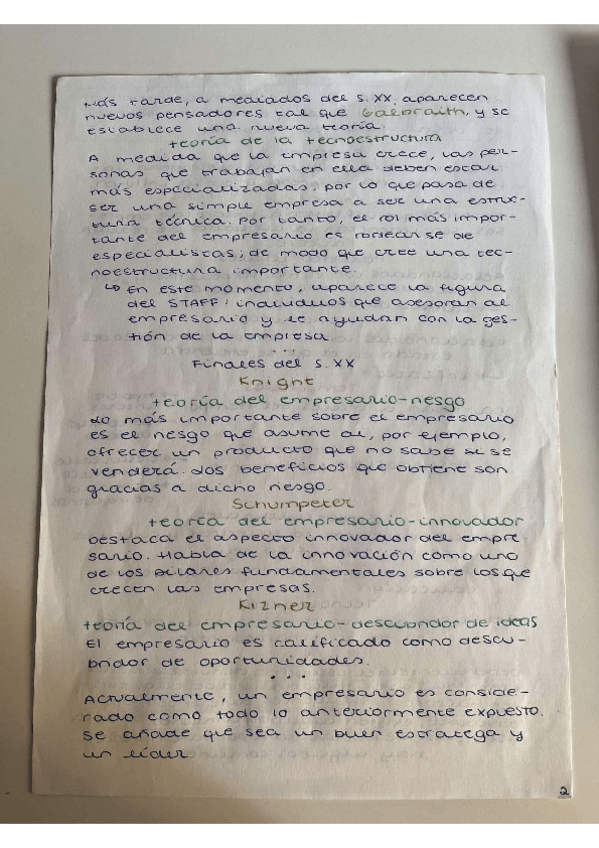 Más tarde, a mediados del s.XX, aparecen
nuevos pensadores tal que Galbraith, y se
establece una nueva teoría.
teoría de la tecnoestructura
A medida que la empresa crece, las per-
sonas que trabajan en ella deben estar
más especializadas, por lo que pasa de
ser una simple empresa a ser una estruc-
tura técnica. Por tanto, el rol más impor-
tante del empresario es rodearse de
especialistas, de modo que cree una tec-
noestructura importante.
↳ En este momento, aparece la figura
del STAFF: individuos que asesoran al
empresario y le ayudan con la ges-
tión de la empresa.
...
Finales del s.XX
Knight
teoría del empresario-riesgo
Lo más importante sobre el empresario
es el riesgo que asume al, por ejemplo,
ofrecer un producto que no sabe si se
venderá. Los beneficios que obtiene son
gracias a dicho riesgo.
Schumpeter
teoría del empresario-innovador
Destaca el aspecto innovador del empre-
sario. Habla de la innovación como uno
de los pilares fundamentales sobre los que
crecen las empresas.
Kizner
teoría del empresario-descubridor de ideas
El empresario es calificado como descu-
bridor de oportunidades.
...
Actualmente, un empresario es conside-
rado como todo lo anteriormente expuesto.
Se añade que sea un buen estratega y
un líder
2